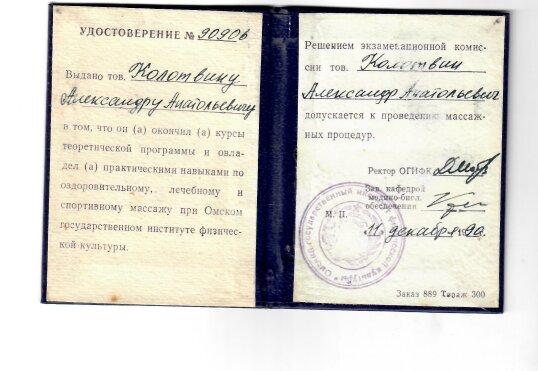 УДОСТОВЕРЕНИЕ № 90906
Выдано тов. Колотвину
Александру Анатольевичу
в том, что он (а) окончил (а) курсы
теоретической программы и овла-
дел (а) практическими навыками по
оздоровительному, лечебному и
спортивному массажу при Омском
государственном институте физичес-
кой культуры.
Решением экзаменационной комис-
сии тов. Колотвин
Александр Анатольевич
допускается к проведению массаж-
ных процедур.
Ректор ОГИФК
Зав. кафедрой
медико-биол.
обеспечения
М. П.
11 декабря 1990
Заказ 889 Тираж 300